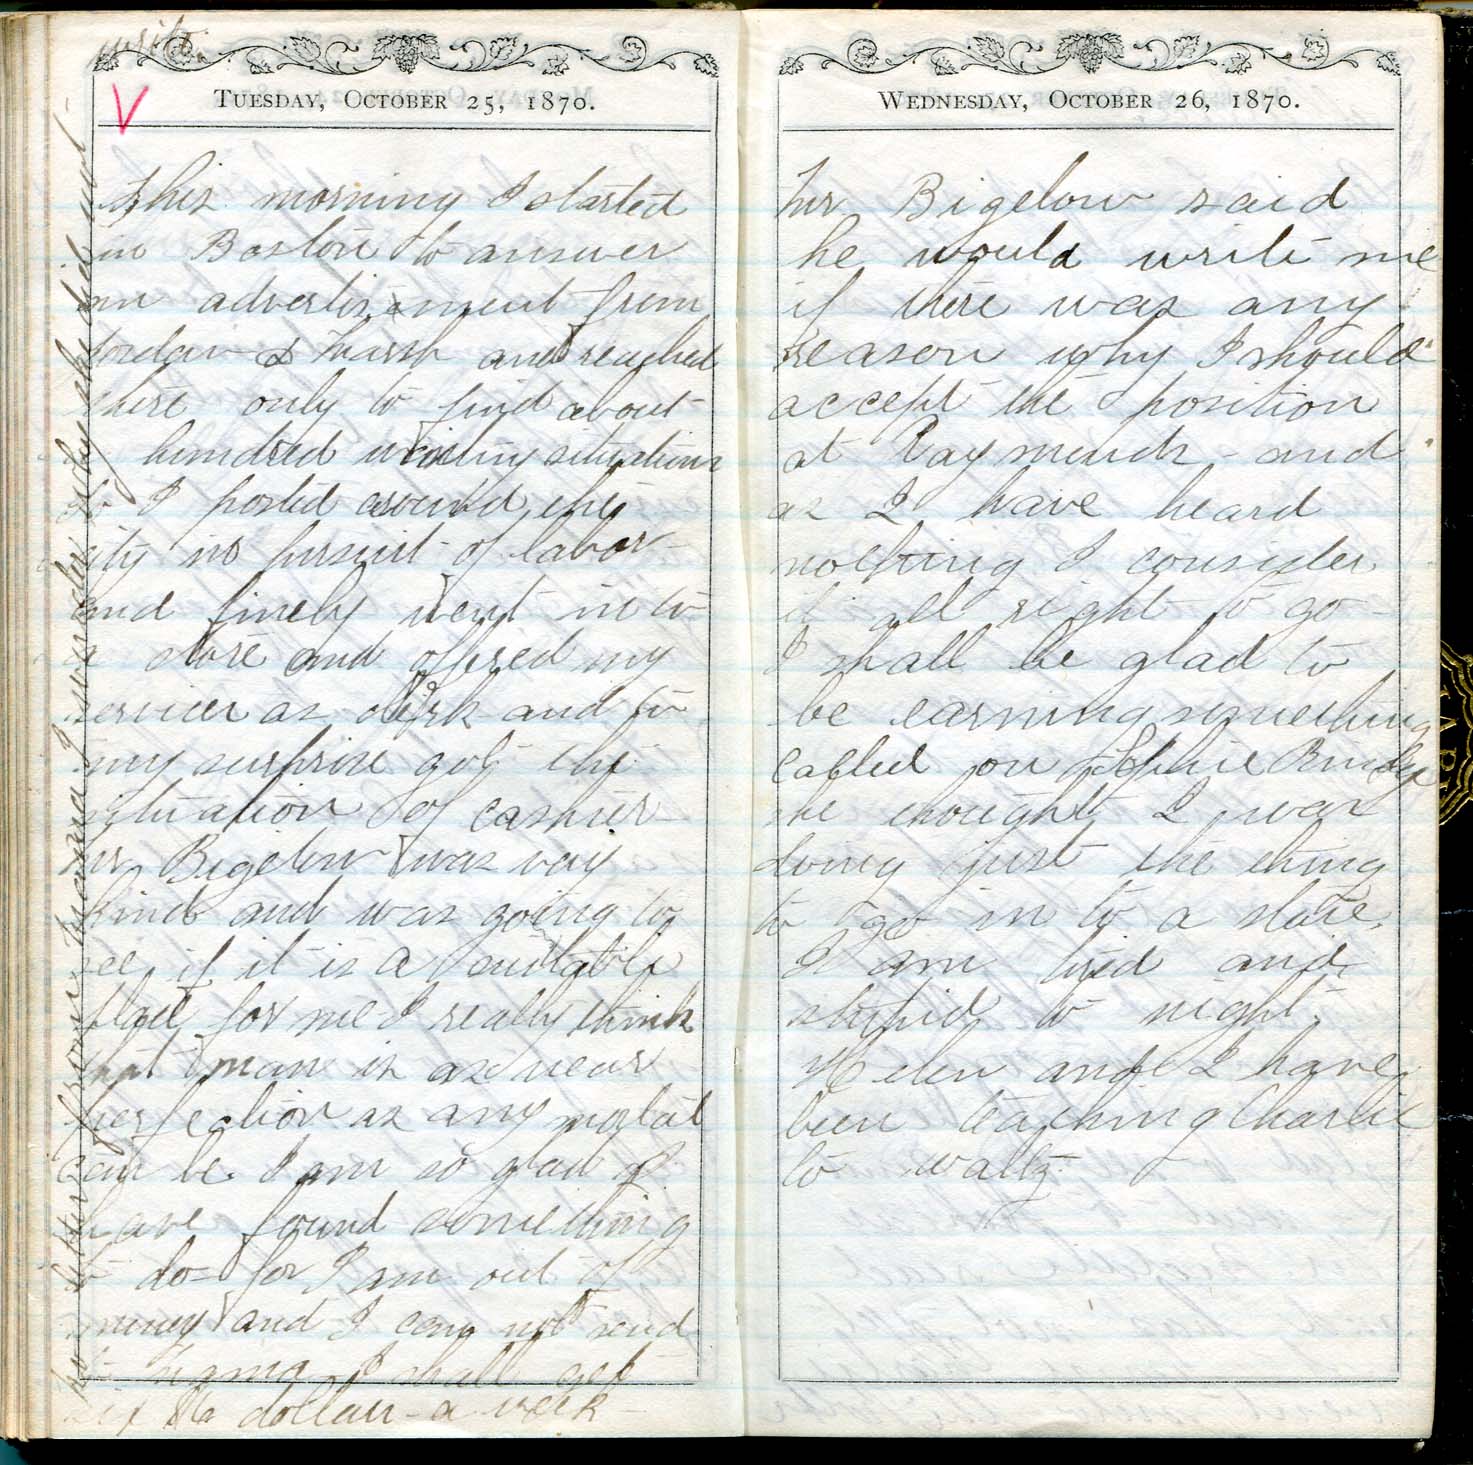 Tuesday, October 25, 1870.
This morning I started
in Boston to answer
an advertisement from
Jordan & Marsh and reached
there only to find about
hundred waiting situations
So I posted around the
city in pursuit of labor
and finely went in to
a store and offered my
services as clerk and to
my surprise got the
situation of cashier
Mr Bigelow was very
kind and was going to
see if it is a suitable
place for me I really think
that man is as near
perfection as any mortal
can be. I am so glad I
have found something
to do - for I am out of
money and I can not send
to Mama I shall get
six $6 dollars a week -
no letters from Mama I wonder why she did not
write.
Wednesday, October 26, 1870.
Mr Bigelow said
he would write me
if there was any
reason why I should
accept the position
at Raymonds - and
as I have heard
nothing I consider
it all right to go -
I shall be glad to
be earning something
called on Sophie
she thought I was
doing just the thing
to go in to a store.
I am tired and
stupid to night.
Helen and I have
been teaching Charlie
to waltz.